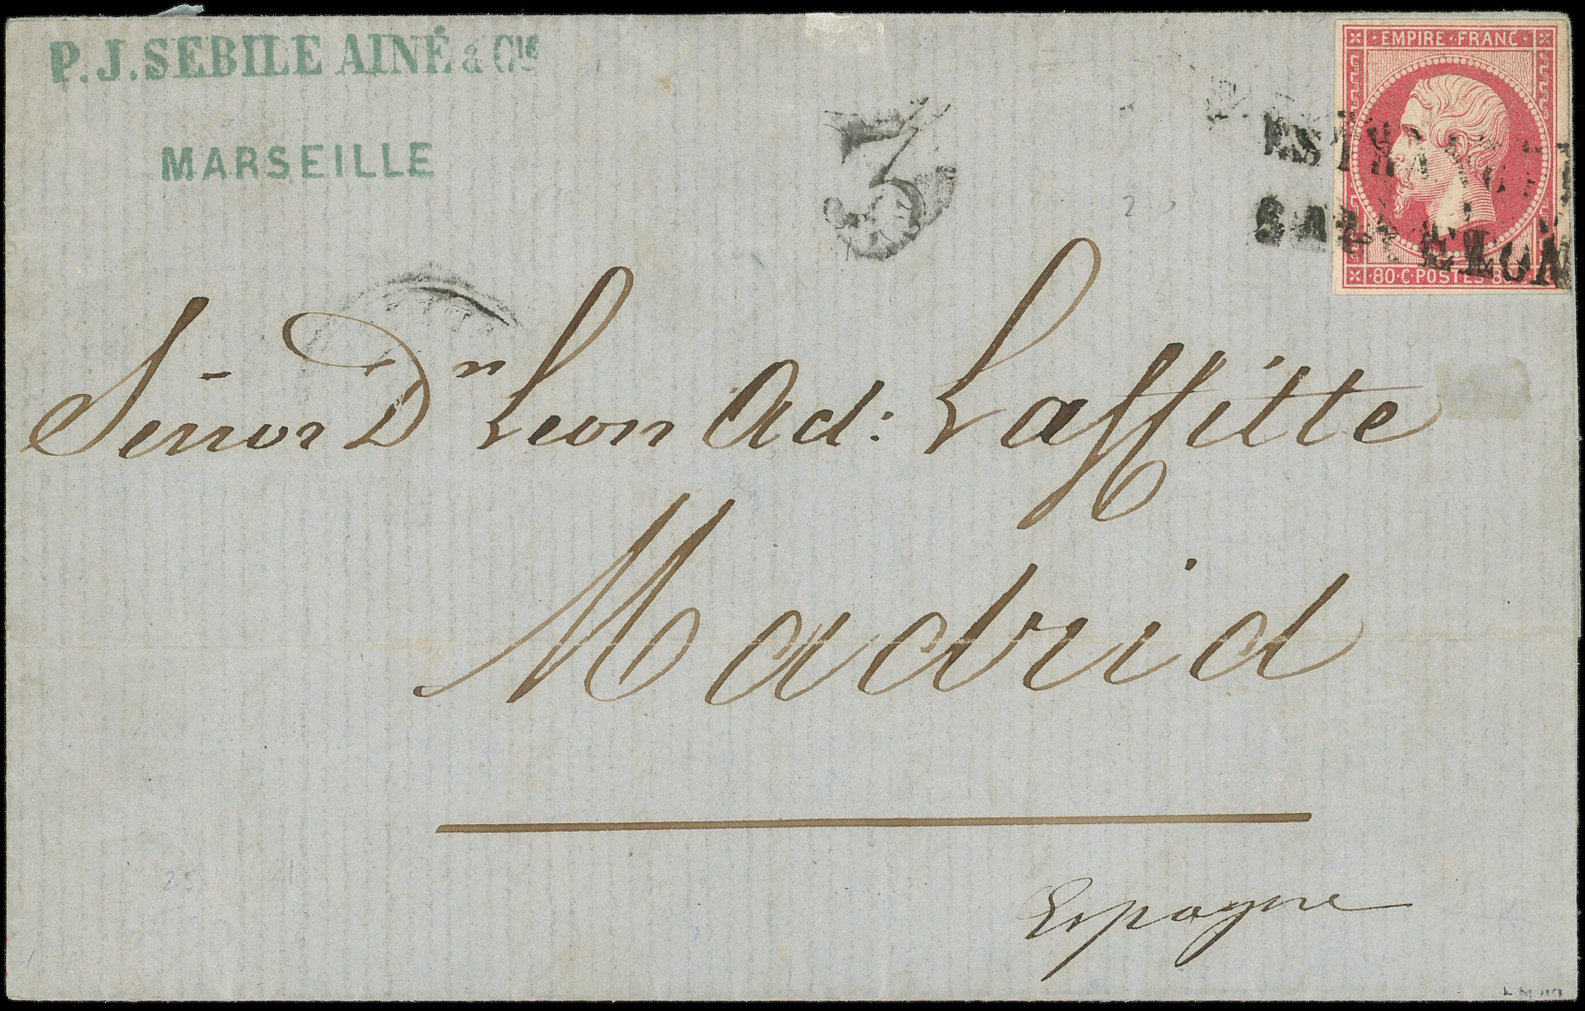 P. J. SEBILE AINÉ & Cie
MARSEILLE
3
EMPIRE·FRANC·
ESTRANGE
BARCELON
80·C·POSTES·8
Señor Dn Leon Ad: Laffitte
Madrid
Espagne